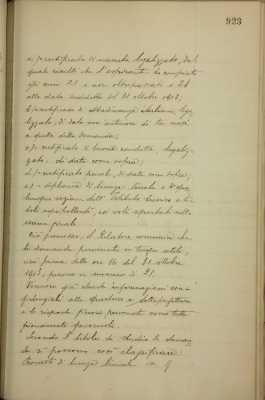 923
a) certificato di nascita legalizzato, dal
quale risulti che l'aspirante ha compiuto
gli anni 21 e non oltrepassati i
alla data suddetta del 31 ottobre 1913;
b) certificato di cittadinanza italiana, lega-
lizzato, di data non anteriore di tre mesi
a quella della domanda;
c) certificato di buona condotta legaliz-
zato di data come sopra;
d) certificato penale, di data come sopra;
e) diploma di licenza liceale o di qua-
lunque sezione dell'Istituto tecnico o ti-
tolo equipollente, coi voti riportati nell'
esame finale.
Ciò premesso, il Relatore comunica che
le domande pervenute in tempo utile,
cioè prima delle ore 16 del 31 ottobre
1913, furono in numero di 21.
Vennero già chieste informazioni con-
fidenziali alle questure e sottoprefetture
e le risposte finora pervenute sono tutte
pienamente favorevoli.
Secondo il titolo di studio le doman-
de si possono così classificare
Provvisti di licenza liceale n. 9